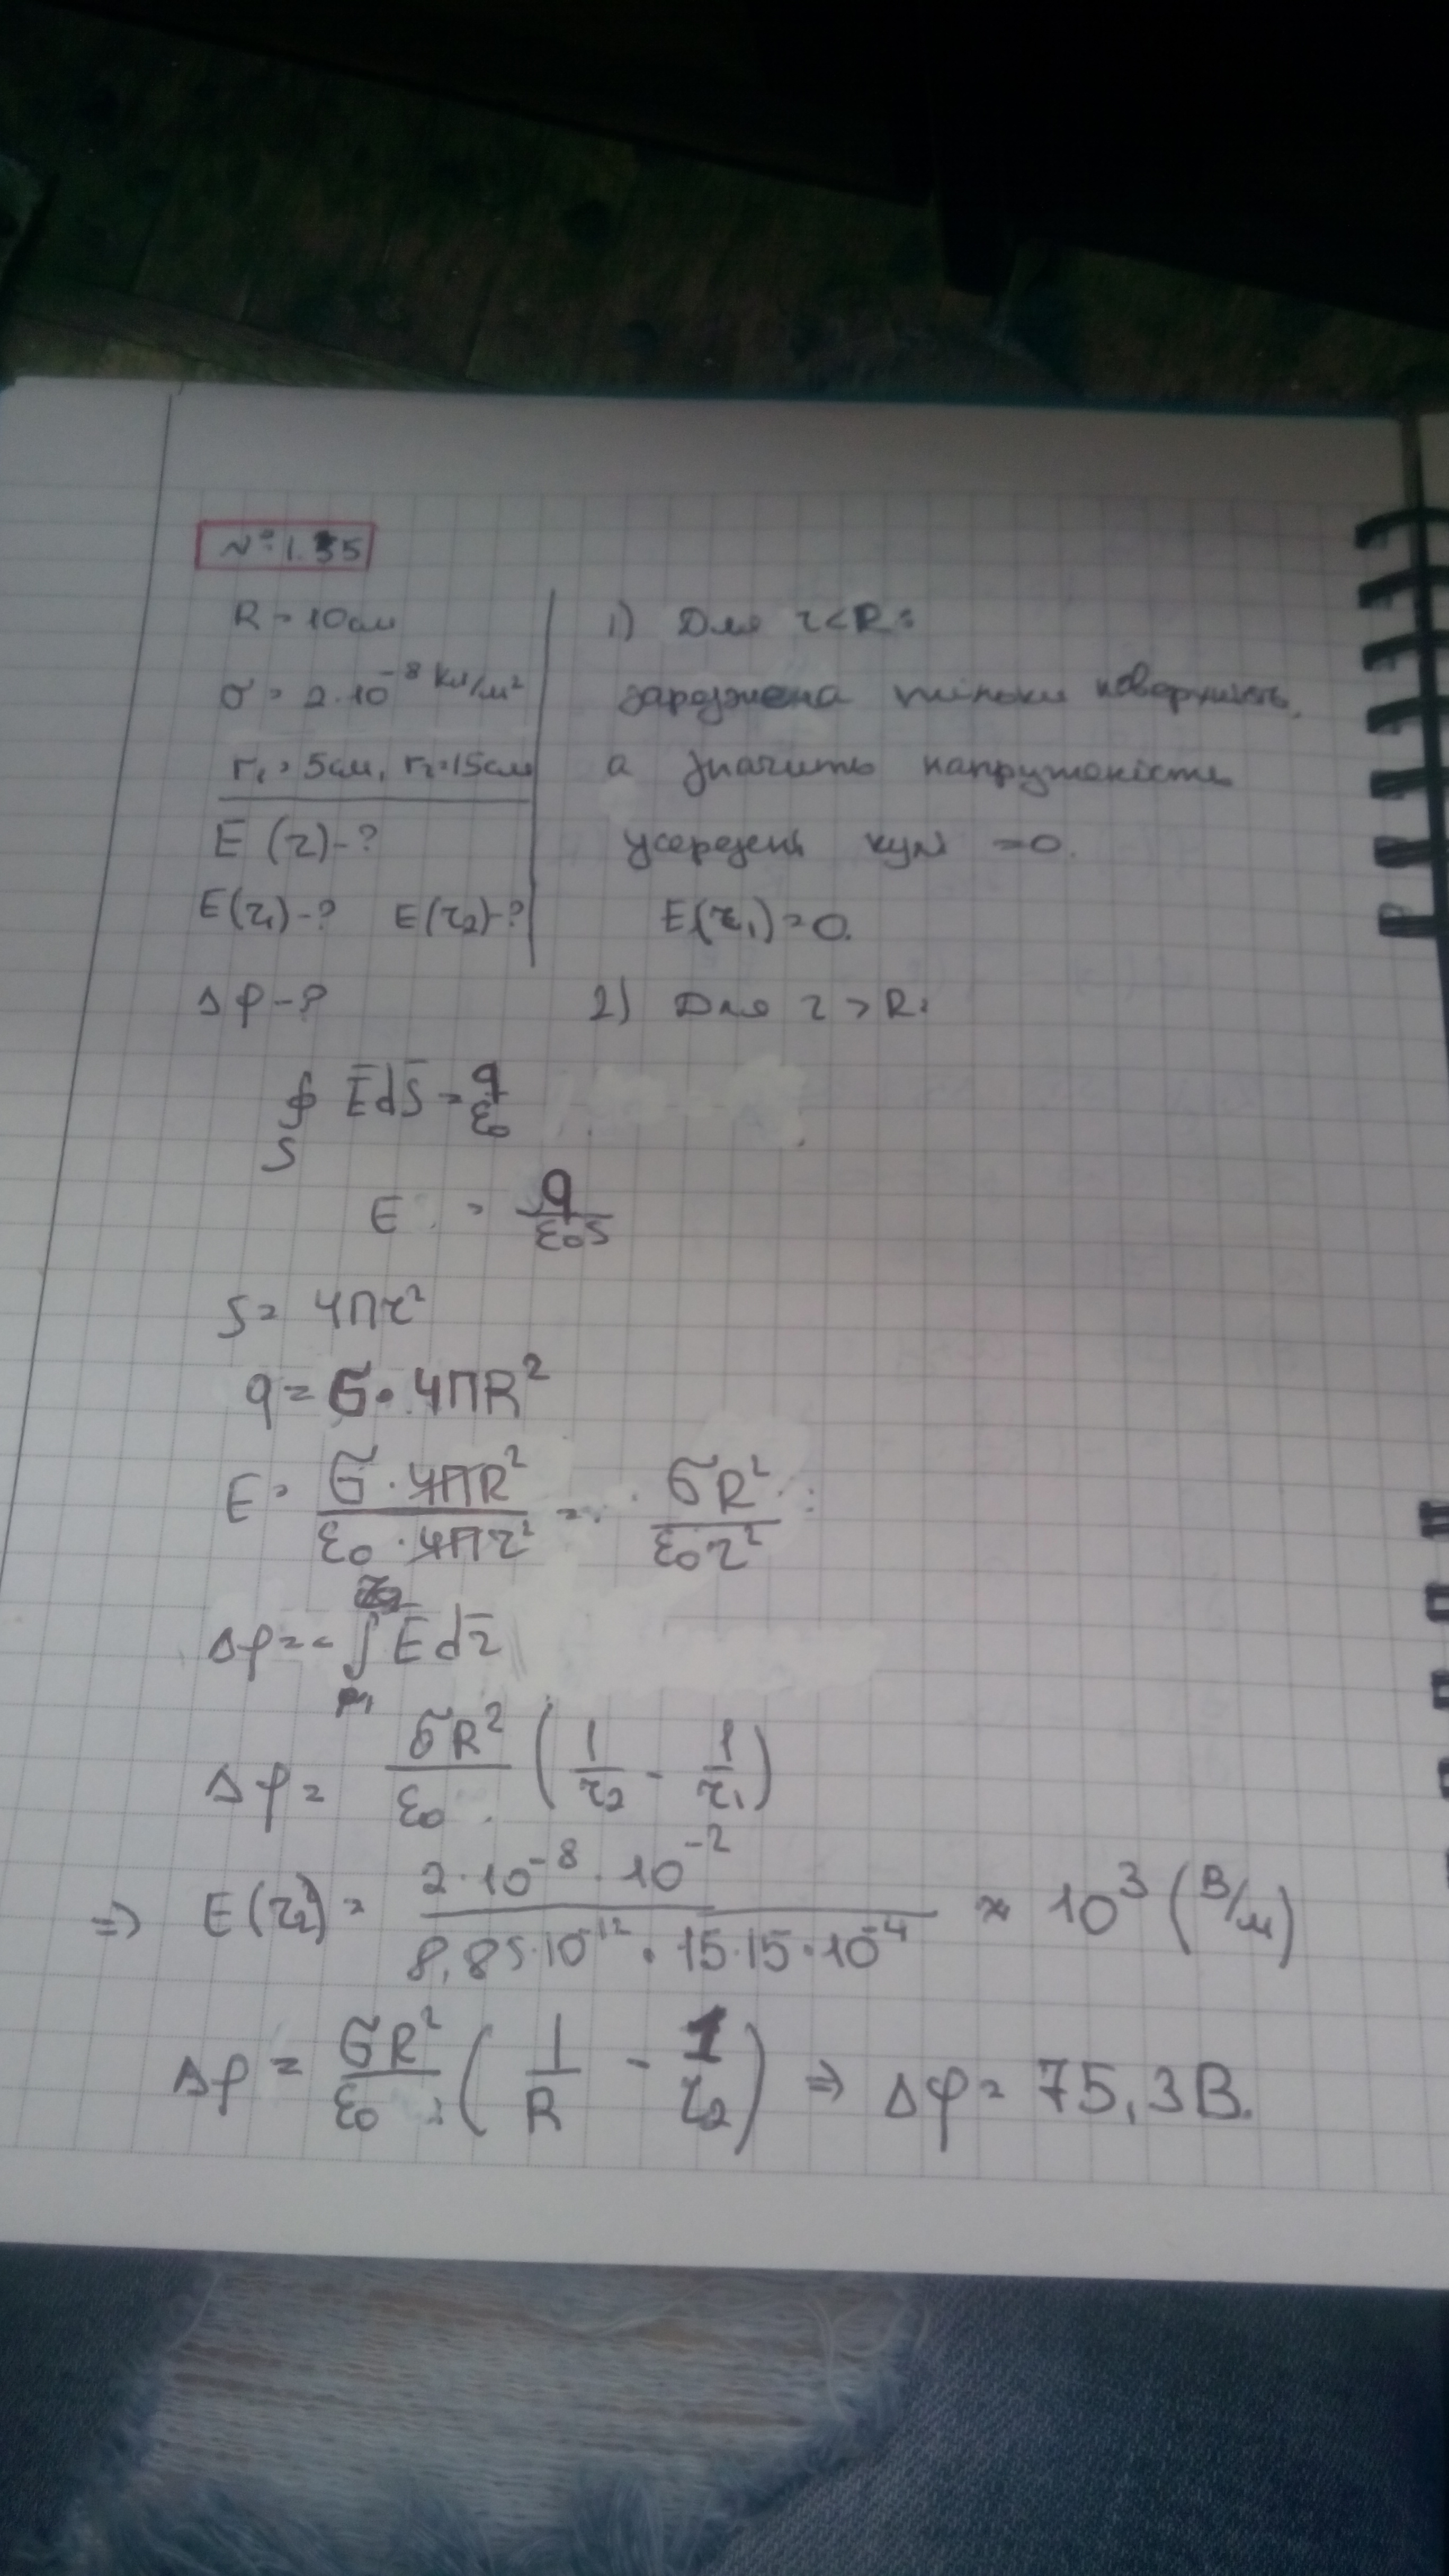 № 1.35
R = 10см
σ = 2·10⁻⁸ Кл/м²
r₁ = 5см, r₂=15см
E (r) - ?
E(r₁) - ? E(r₂) - ?
Δφ - ?
1) Для r < R:
заряджена тільки поверхність,
а значить напруженість
усередені кулі = 0.
E(r₁) = 0.
2) Для r > R:
∮ E̅dS̅ = q/ε₀
S
E = q/ε₀S
S = 4πr²
q = σ · 4πR²
E = σ · 4πR²/ε₀ · 4πr² = σR²/ε₀r²
Δφ = - ∫ E̅ dr̅
Δφ = σR²/ε₀ (1/r₂ - 1/r₁)
⇒ E(r₂) = 2·10⁻⁸·10⁻²/8,85·10⁻¹²·15·15·10⁻⁴ ≈ 10³ (В/м)
Δφ = σR²/ε₀ (1/R - 1/r₂) ⇒ Δφ = 75,3В.